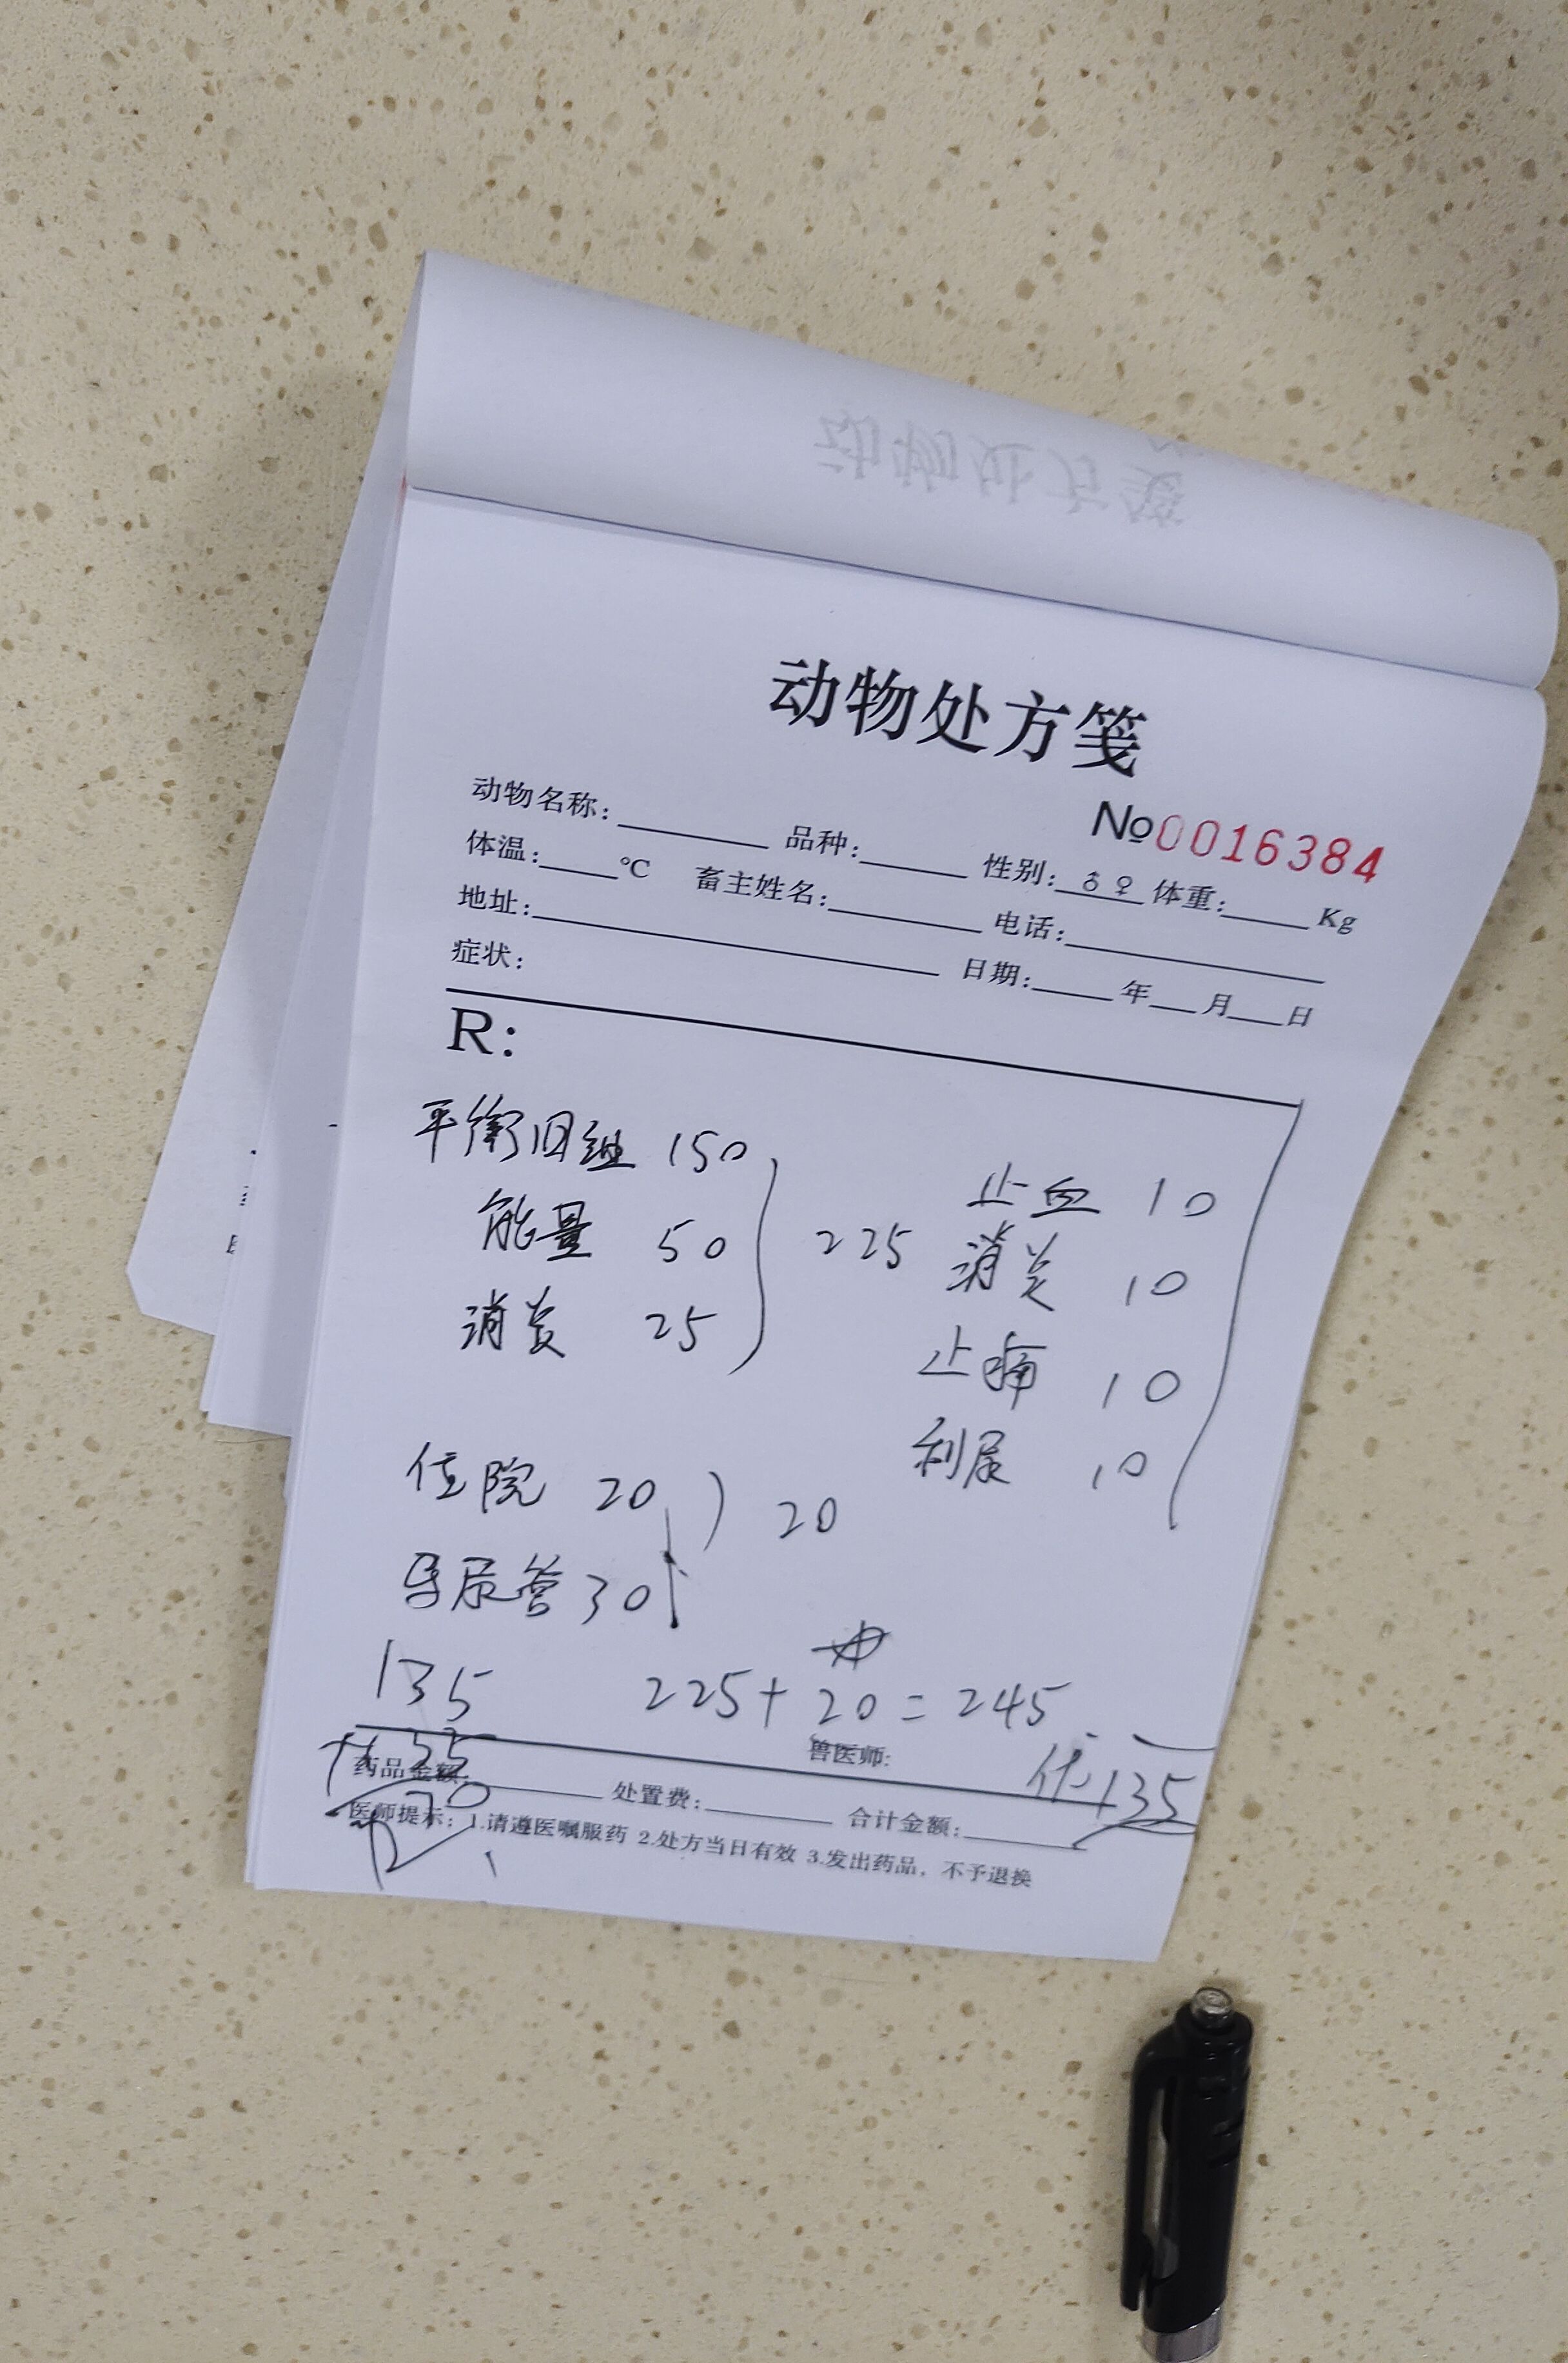 动物处方笺
No 0016384
动物名称: 品种: 性别: ♂♀ 体重: Kg
体温: ℃ 畜主姓名: 电话:
地址: 日期: 年 月 日
症状:
R:
平衡 150
能量 50
消炎 25
225
止血 10
消炎 10
止痛 10
利尿 10
住院 20 ) 20
导尿管 30
135
225+20=245
兽医师:
135
药品金额: 处置费: 合计金额:
医师提示: 1.请遵医嘱服药 2.处方当日有效 3.发出药品，不予退换